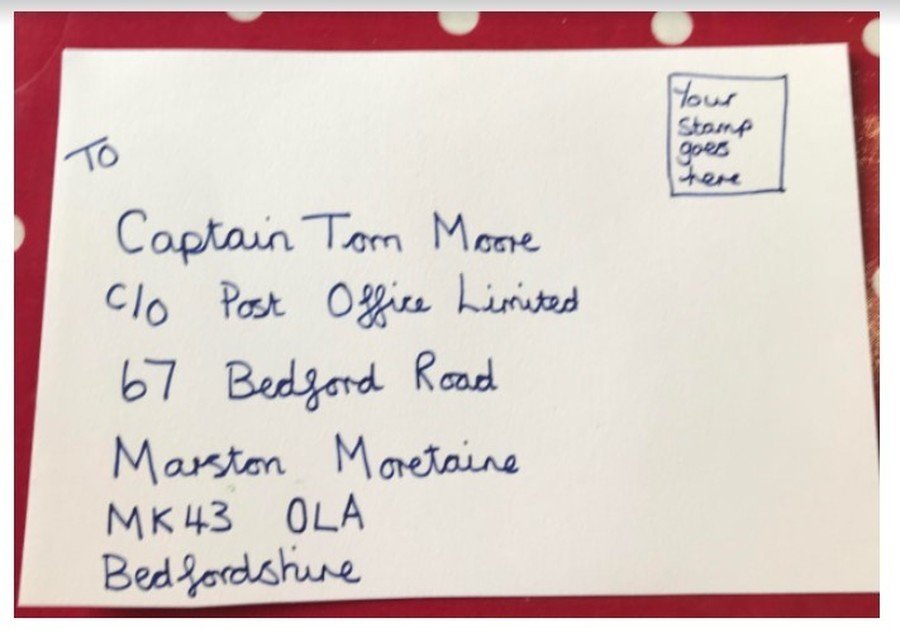 Your
Stamp
goes
here
TO
Captain Tom Moore
C/o Post Office Limited
67 Bedford Road
Marston Moretaine
MK43 0LA
Bedfordshire